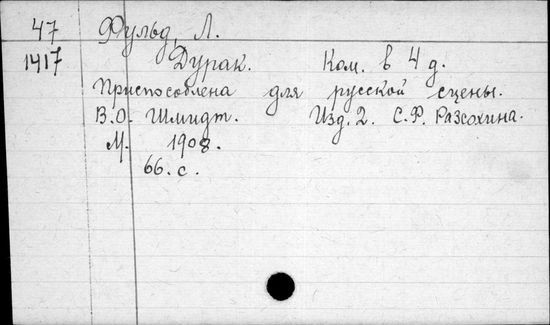 47 Фульд, Л.
1417 Дурак. Ком. в 4 д.
Приспособлена для русской сцены.
В.О. Шмидт. Изд. 2. С.Ф. Разсохина.
М. 1908.
66. с.